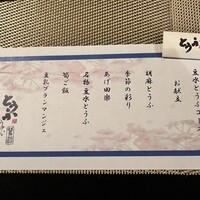 豆水とうふコース
お献立
胡麻とうふ
季節の彩り
あげ田楽
名物 豆水とうふ
筍ご飯
豆乳ブランマンジェ
とうふ